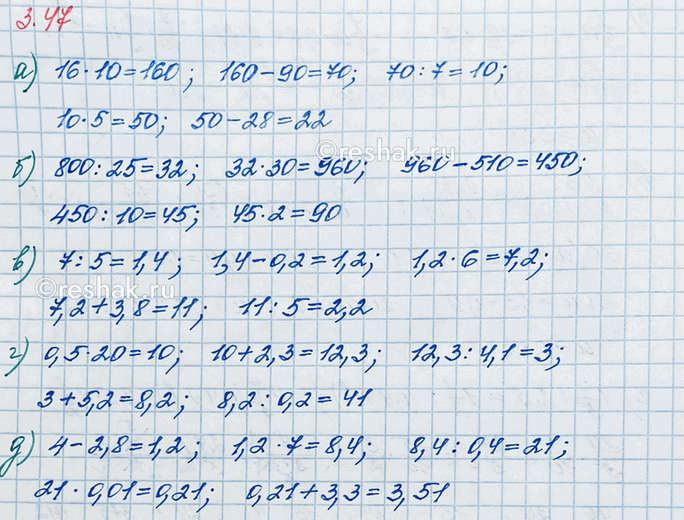 3.47
а) 16·10=160; 160-90=70; 70:7=10;
10·5=50; 50-28=22
©reshak.ru
б) 800:25=32; 32·30=960; 960-510=450;
450:10=45; 45·2=90
в) 7:5=1,4; 1,4-0,2=1,2; 1,2·6=7,2;
©reshak.ru
7,2+3,8=11; 11:5=2,2
г) 0,5·20=10; 10+2,3=12,3; 12,3:4,1=3;
3+5,2=8,2; 8,2:0,2=41
д) 4-2,8=1,2; 1,2·7=8,4; 8,4:0,4=21;
21·0,01=0,21; 0,21+3,3=3,51